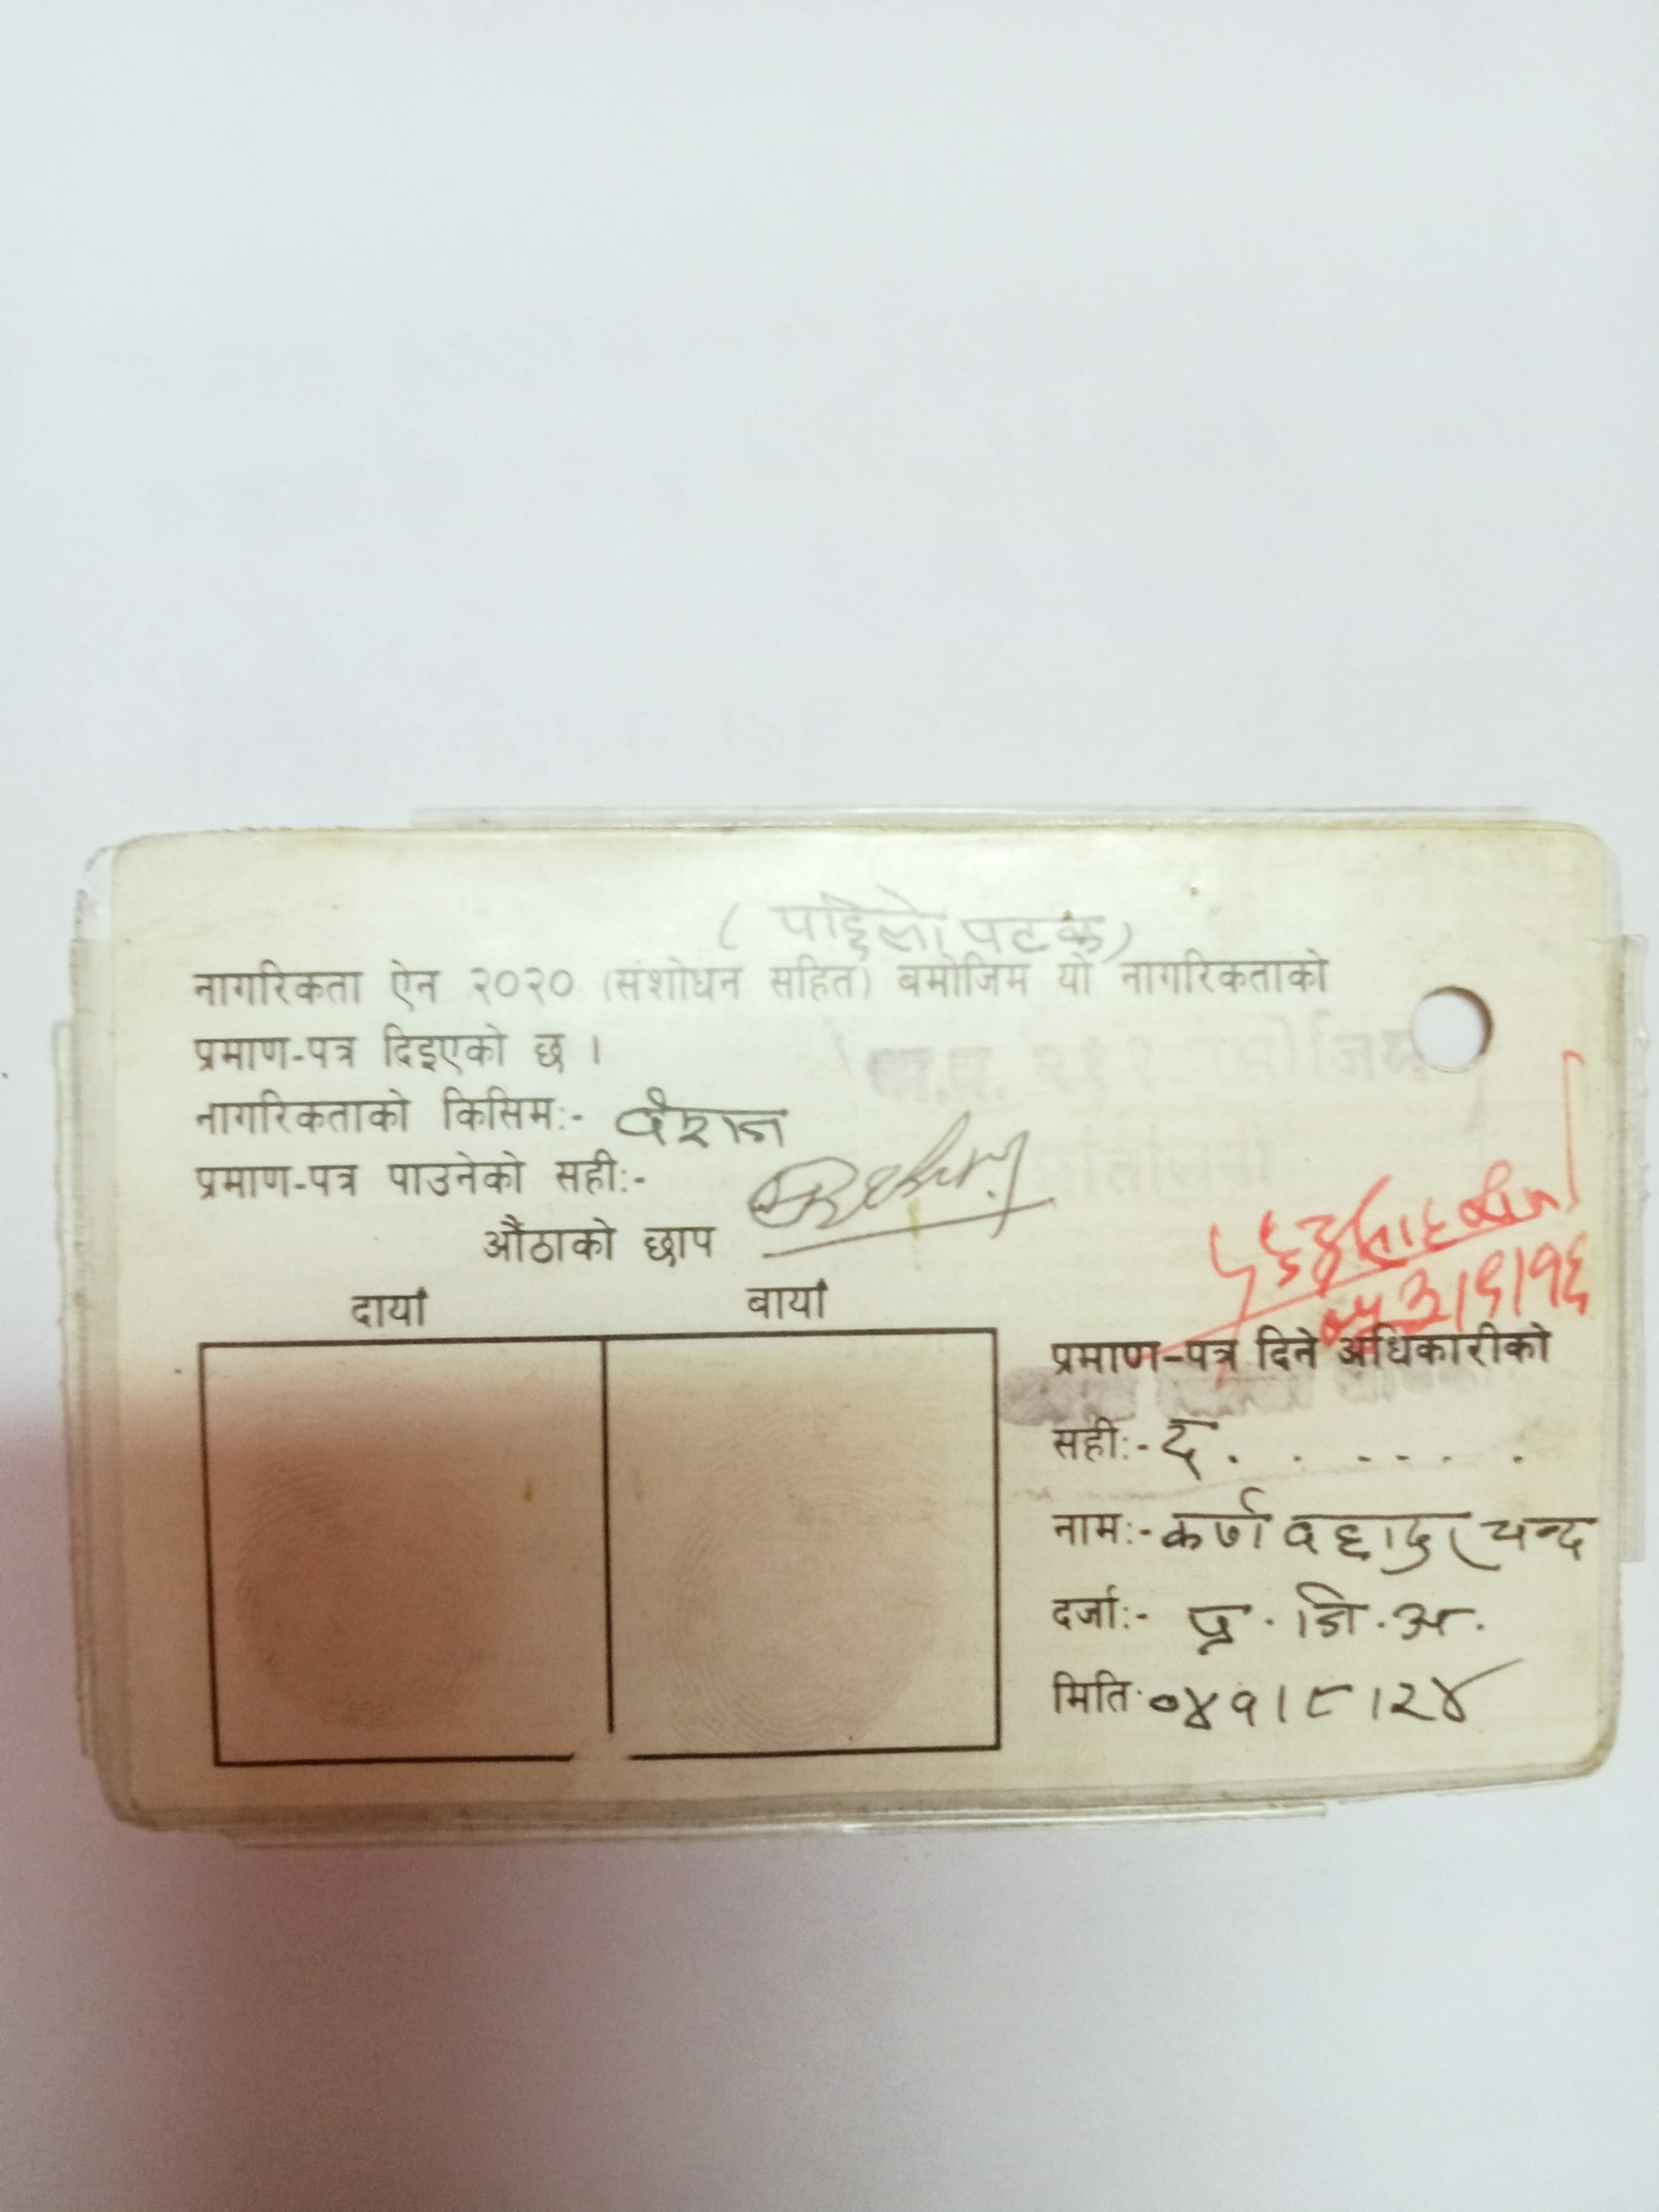 ( पहिलो पटक)
नागरिकता ऐन २०२० (संशोधन सहित) बमोजिम यो नागरिकताको
प्रमाण-पत्र दिइएको छ ।
नागरिकताको किसिम:- वंशज
प्रमाण-पत्र पाउनेको सही:-
औंठाको छाप
दायाँ बायाँ
३।९।१६
प्रमाण-पत्र दिने अधिकारीको
सही:- द. . . . . . .
नाम:- कर्ण वहादुर चन्द
दर्जा:- प्र. जि. अ.
मिति: ०४१।८।२४